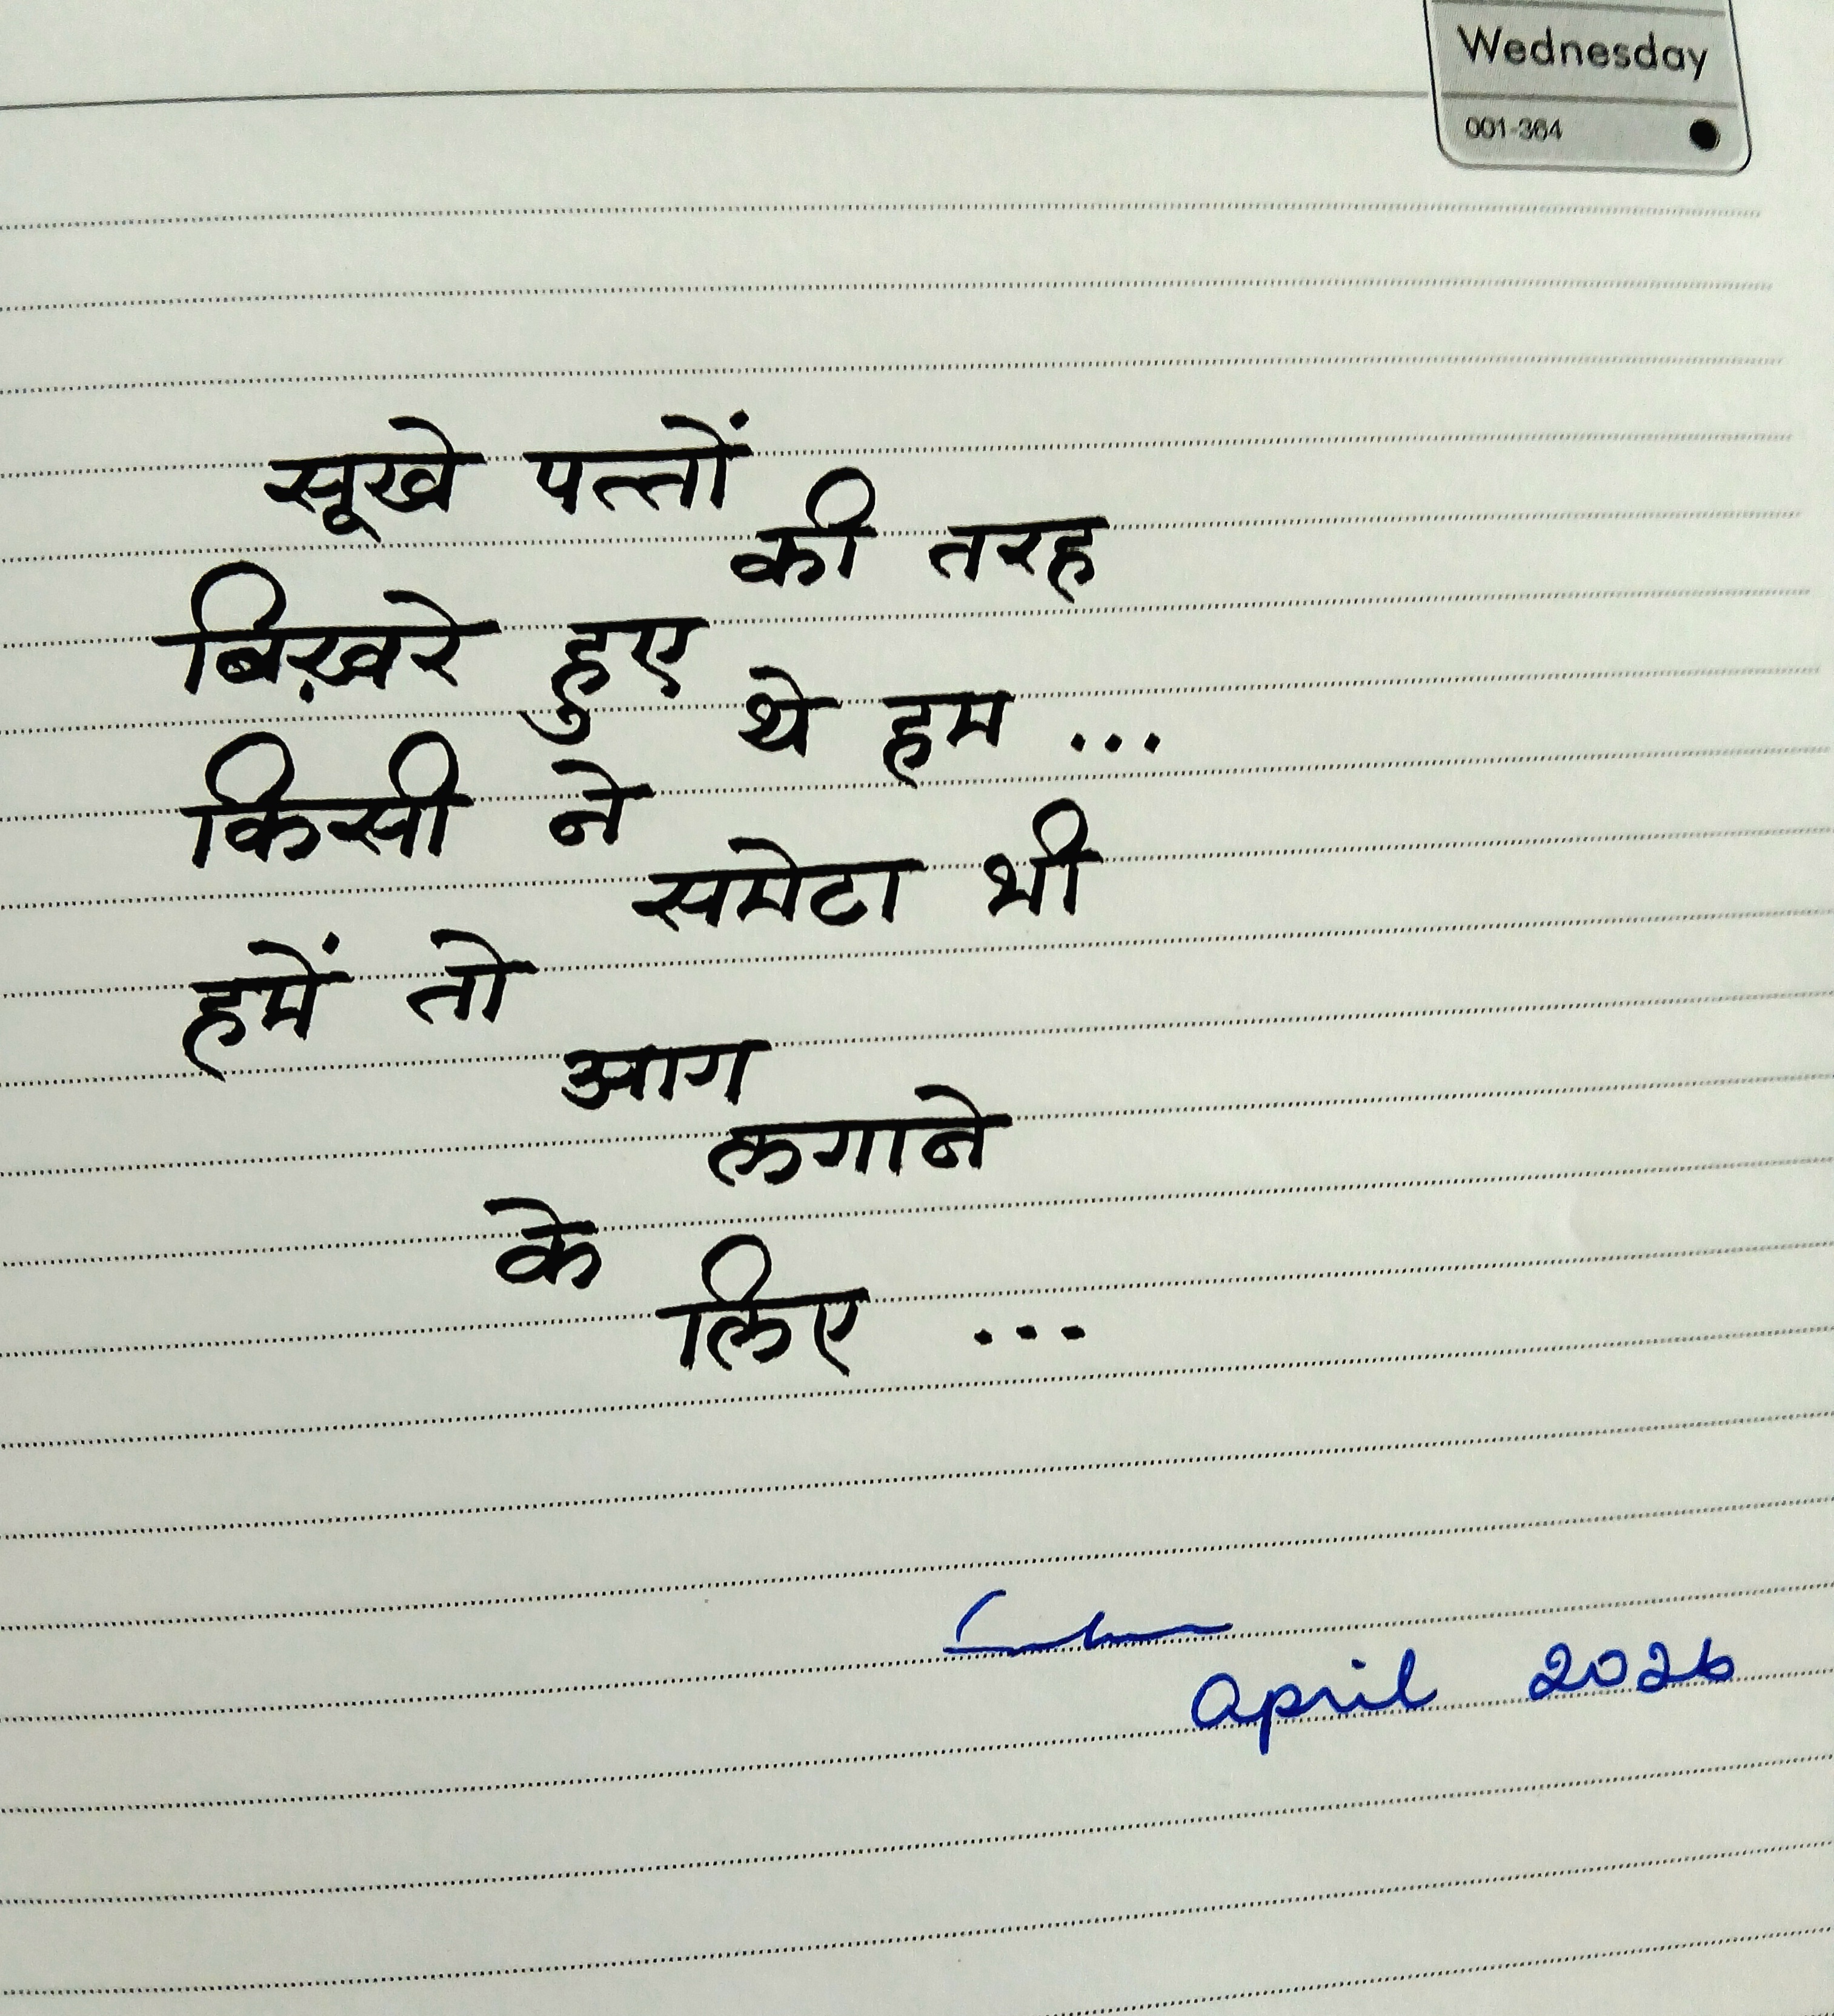 Wednesday
001-364
सूखे पत्तों
की तरह
बिख़रे हुए
थे हम ...
किसी ने
समेटा भी
हमें तो
आग
लगाने
के
लिए ...
April 2026